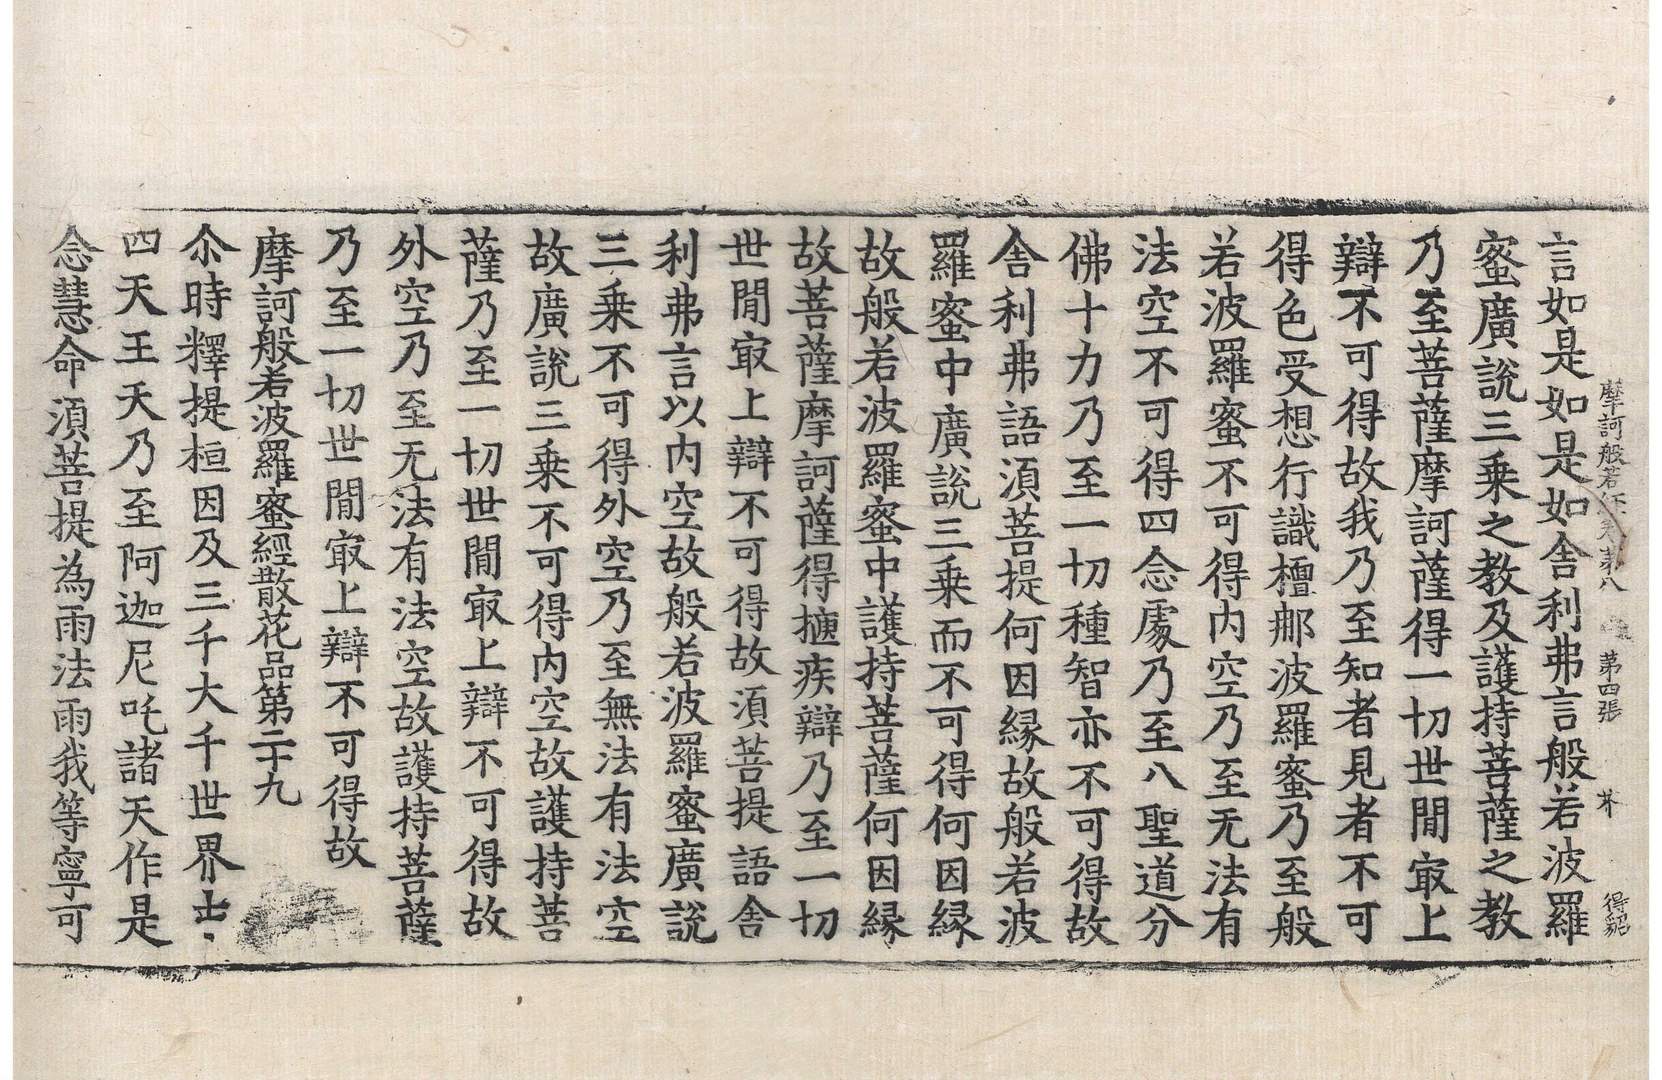 摩訶般若經卷第八 第四張 芥 得貂
言如是如是如舍利弗言般若波羅
蜜廣說三乘之教及護持菩薩之教
乃至菩薩摩訶薩得一切世閒㝡上
辯不可得故我乃至知者見者不可
得色受想行識檀那波羅蜜乃至般
若波羅蜜不可得內空乃至无法有
法空不可得四念處乃至八聖道分
佛十力乃至一切種智亦不可得故
舍利弗語須菩提何因緣故般若波
羅蜜中廣說三乘而不可得何因緣
故般若波羅蜜中護持菩薩何因緣
故菩薩摩訶薩得揵疾辯乃至一切
世閒㝡上辯不可得故須菩提語舍
利弗言以內空故般若波羅蜜廣說
三乘不可得外空乃至無法有法空
故廣說三乘不可得內空故護持菩
薩乃至一切世閒㝡上辯不可得故
外空乃至无法有法空故護持菩薩
乃至一切世閒㝡上辯不可得故
摩訶般若波羅蜜經散花品第二十九
尒時釋提桓因及三千大千世界中
四天王天乃至阿迦尼吒諸天作是
念慧命須菩提為雨法雨我等寧可